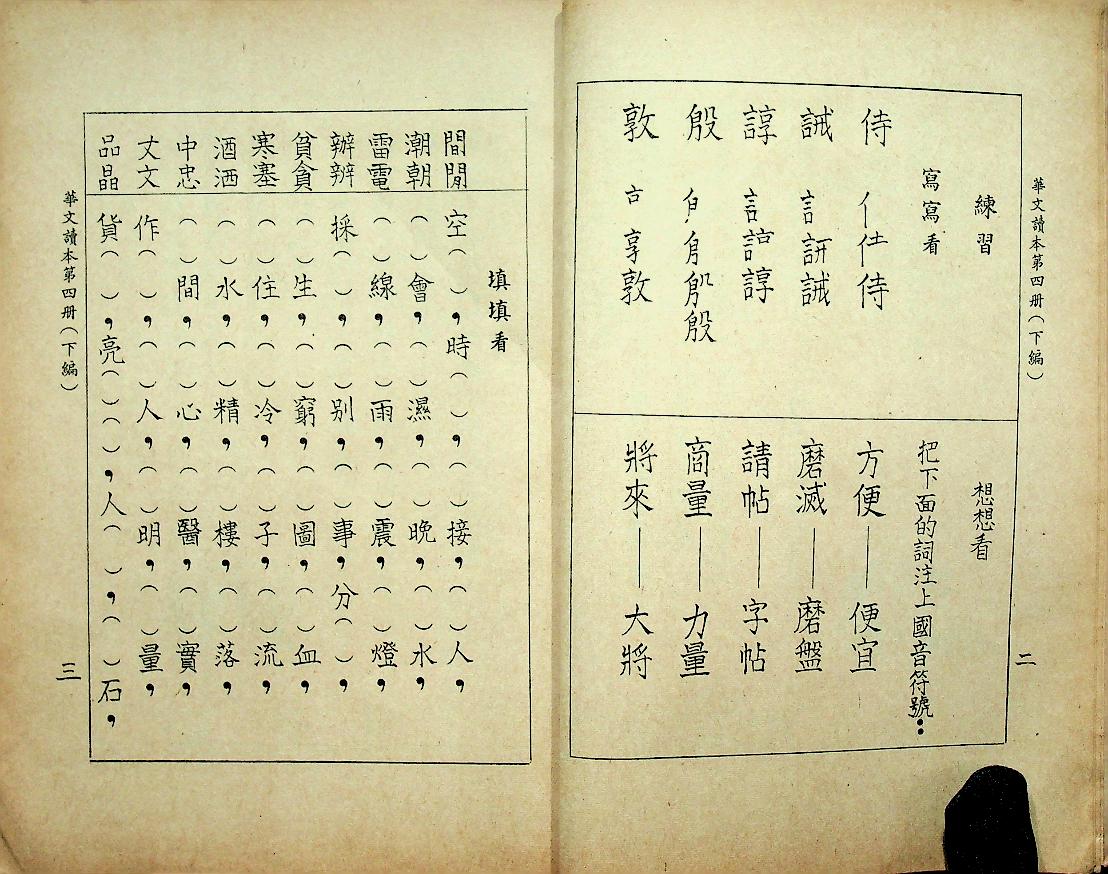 華文讀本第四册（下編）
二
練習
寫寫看
侍 亻 仕 侍
誡 言 訮 誡
諄 言 諄
殷
敦 亯 享 敦
想想看
把下面的詞注上國音符號：
方便——便宜
磨滅——磨盤
請帖——字帖
商量——力量
將來——大將
填填看
間閒 空（ ），時（ ），（ ）接，（ ）人，
潮朝 （ ）會，（ ）濕，（ ）晚，（ ）水，
雷電 （ ）線，（ ）雨，（ ）震，（ ）燈，
辦辨 採（ ），（ ）别，（ ）事，分（ ），
貧貪 （ ）生，（ ）窮，（ ）圖，（ ）血，
寒塞 （ ）住，（ ）冷，（ ）子，（ ）流，
酒洒 （ ）水，（ ）精，（ ）樓，（ ）落，
中忠 （ ）間，（ ）心，（ ）醫，（ ）實，
丈文 作（ ），（ ）人，（ ）明，（ ）量，
品晶 貨（ ），亮（ ）（ ），人（ ），（ ）石，
華文讀本第四册（下編）
三